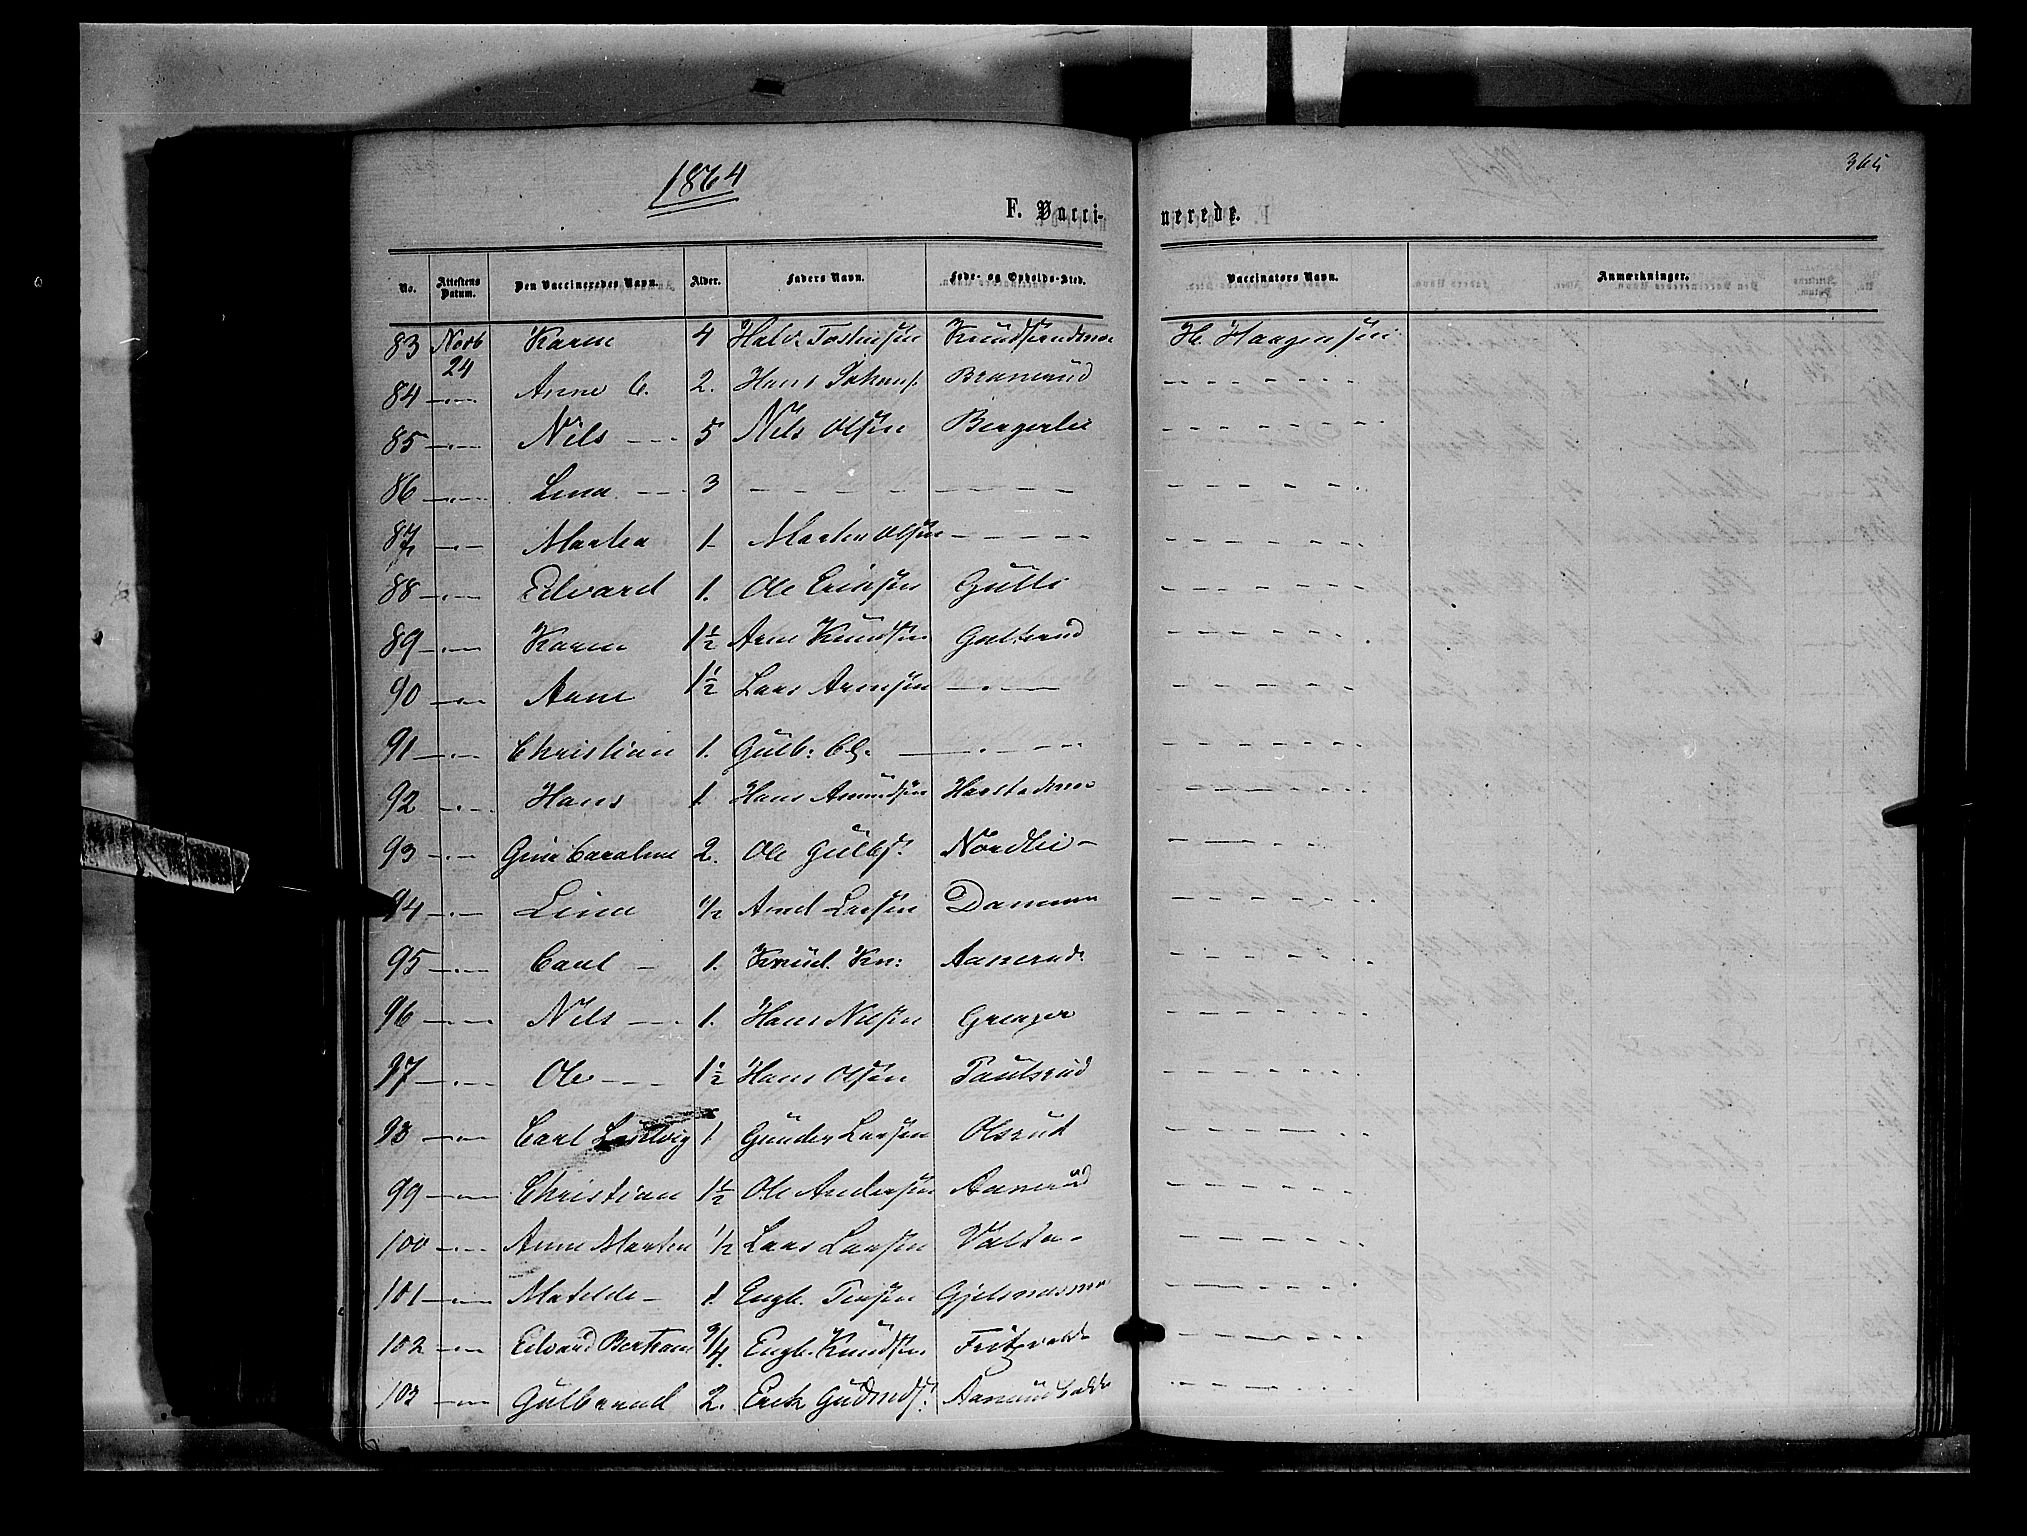 1864
365
F. Vaccinerede.
No. Attestens Datum. Den Vaccineredes Navn. Alder. Faders Navn. Føde- og Opholds-Sted. Vaccinators Navn. Anmærkninger.
83 Novb 24 Karen 4 Halv. Tostensen H. Haagensen
84 —"— Anne C. 2. Hans Johans. Bramerud — — — —
85 —"— Nils — 5 Nils Olsen Bergerlie — — — —
86 —"— Lina — 3 — — — — — — — —
87 —"— Marthea 1 Morten Olsen — — — — — — — —
88 —"— Edvard 1. Ole Ericsen Gulli — — — —
89 —"— Karen 1½ Arne Knudsen Gulterud — — — —
90 —"— Anne 1½ Lars Arnesen —"— — — — —
91 —"— Christian 1. Gulb. —"— — — — —
92 —"— Hans 1. Hans Amundsen — — — —
93 —"— Gine Caroline 2. Ole Gulbs. Nordlie — — — —
94 —"— Lina ½ Arnel Larsen Dammen — — — —
95 —"— Carl — 1. Knud Kn: Aaserud — — — —
96 —"— Nils — 1. Hans Nilsen — — — —
97 —"— Ole — 1½ Hans Olsen Paulsrud — — — —
98 —"— Carl Ludvig 1 Gunder Larsen Olsrud — — — —
99 —"— Christian 1½ Ole Andersen Aaserud — — — —
100 —"— Anne Marthea ½ Lars Larsen — — — —
101 —"— Matelde — 1. Engb. Jensen — — — —
102 —"— Edvard Bertram ¾ Engb. Knudsen — — — —
103 —"— Gulbrand 2. Erik Gudmds. — — — —